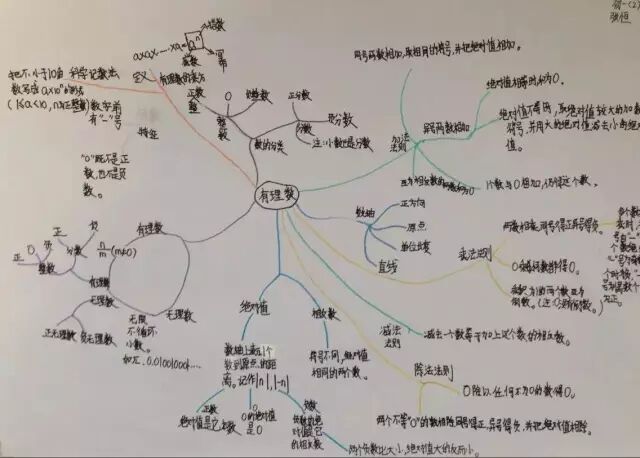 初一(2)
骏恒
有理数
a×a×…×a=aⁿ
指数
底数
幂
有理数的乘方
定义
科学记数法
把一个大于10的
数写成a×10ⁿ的形式
(1≤a<10,n为正整数)
数字前
有"-"号
特征
"0"既不是正
数,也不是负
数。
数的分类
整数
正数
0
负整数
分数
正分数
负分数
注:小数也是分数
加法
法则
同号两数相加,取相同的符号,并把绝对值相加。
异号两数相加
绝对值相等时和为0。
绝对值不等时,取绝对值较大的加数
符号,并用大的绝对值减去小的绝对
值。
互为相反数的两数和为0
1个数与0相加,仍得这个数。
数轴
正方向
原点
单位长度
直线
乘法法则
两数相乘,同号得正,异号得负。
0乘任何数都得0。
乘积为1的两个数互为
倒数。(注:0没有倒数)
多个数
减法
法则
减去一个数等于加上这个数的相反数。
除法法则
0除以任何不为0的数得0。
两个不等"0"的数相除,同号得正,异号得负,并把绝对值相除。
绝对值
数轴上表示1个
数到原点的距
离。记作|n|,|-n|
正数
绝对值是它本数
0的绝对值
是0
负数
负数的绝
对值是它
的相反数
两个负数比大小,绝对值大的反而小。
相反数
符号不同,绝对值
相同的两个数。
有理数
n/m(m≠0)
整数
正
0
负
分数
正
负
有理数
无理数
正无理数
负无理数
无理数
无限
不循环
小数。
如π、0.010010001…